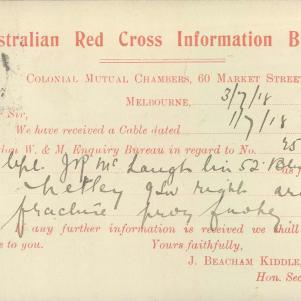 stralian Red Cross Information B
Colonial Mutual Chambers, 60 Market Street
Melbourne, 3/7/18
Sir,
We have received a Cable dated 1/7/18
don W. & M. Enquiry Bureau in regard to No.
Cpl. J. P. McLaughlin 52. as f
Netley gsw right ar
fracture
If any further information is received we shall
e to you. Yours faithfully,
J. Beacham Kiddle,
Hon. Sec